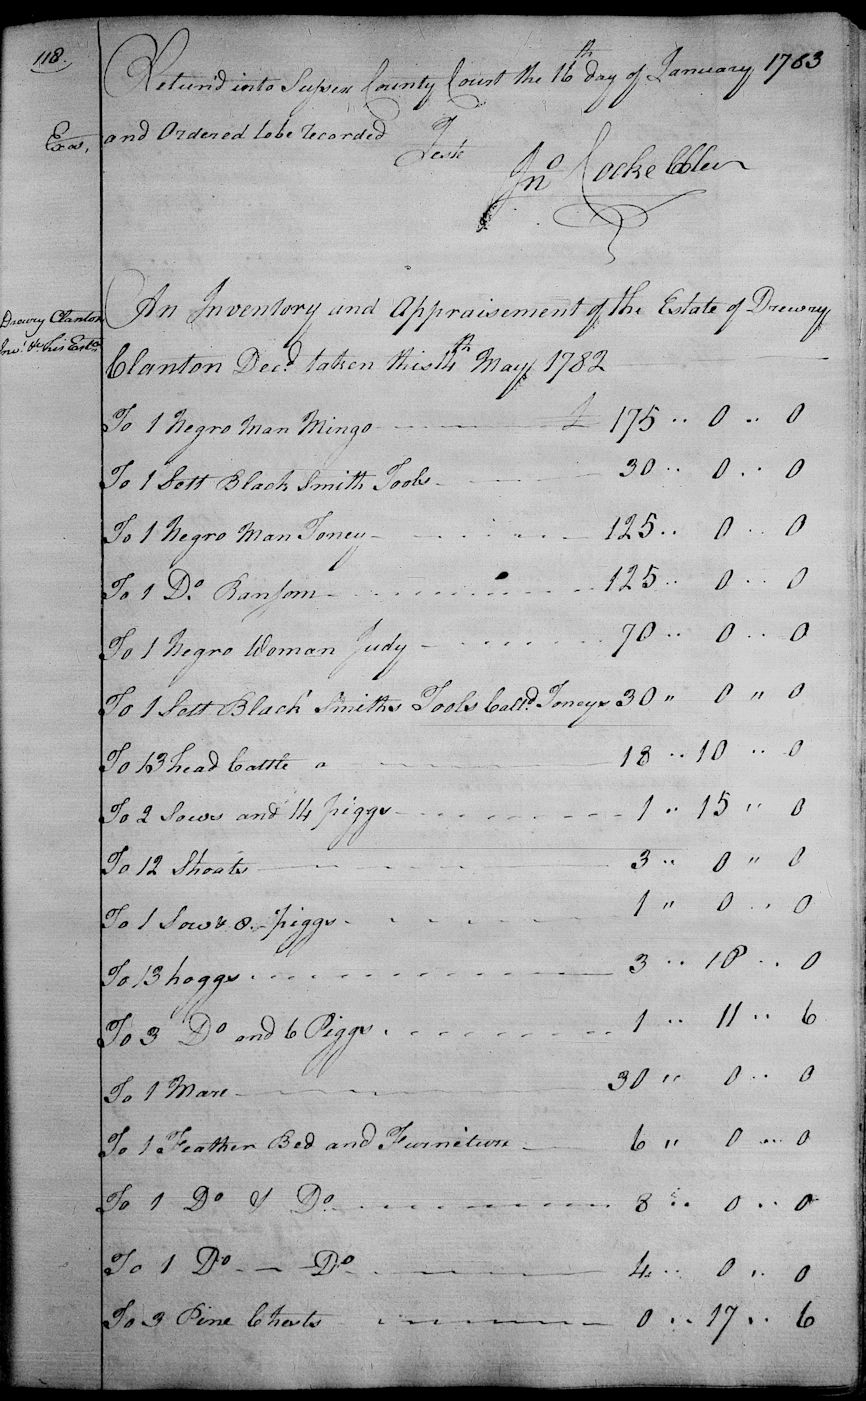 118.
Return'd into Sussex County Court the 16th day of January 1783
Exd, and Ordered to be recorded
Teste
Jno Cocke CClur
Drewry Clanton
Inv. &c. his Esta
An Inventory and Appraisement of the Estate of Drewry
Clanton Decd taken this 14th May 1782
To 1 Negro Man Mingo £ 175 .. 0 .. 0
To 1 Sett Black Smith Tools 30 .. 0 .. 0
To 1 Negro Man Toney 125 .. 0 .. 0
To 1 Do. Ransom 125 .. 0 .. 0
To 1 Negro Woman Judy 70 .. 0 .. 0
To 1 Sett Black Smiths Tools Calld. Toneys 30 " 0 " 0
To 13 head Cattle a 18 .. 10 .. 0
To 2 Sows and 14 piggs 1 .. 15 " 0
To 12 Shoats 3 .. 0 " 0
To 1 Sow & 8 piggs 1 " 0 .. 0
To 13 hoggs 3 .. 18 .. 0
To 3 Do and 6 Piggs 1 .. 11 .. 6
To 1 Mare 30 " 0 .. 0
To 1 Feather Bed and Furniture 6 " 0 .. 0
To 1 Do & Do 8 .. 0 .. 0
To 1 Do — Do 4 .. 0 .. 0
To 3 Pine Chests 0 .. 17 .. 6